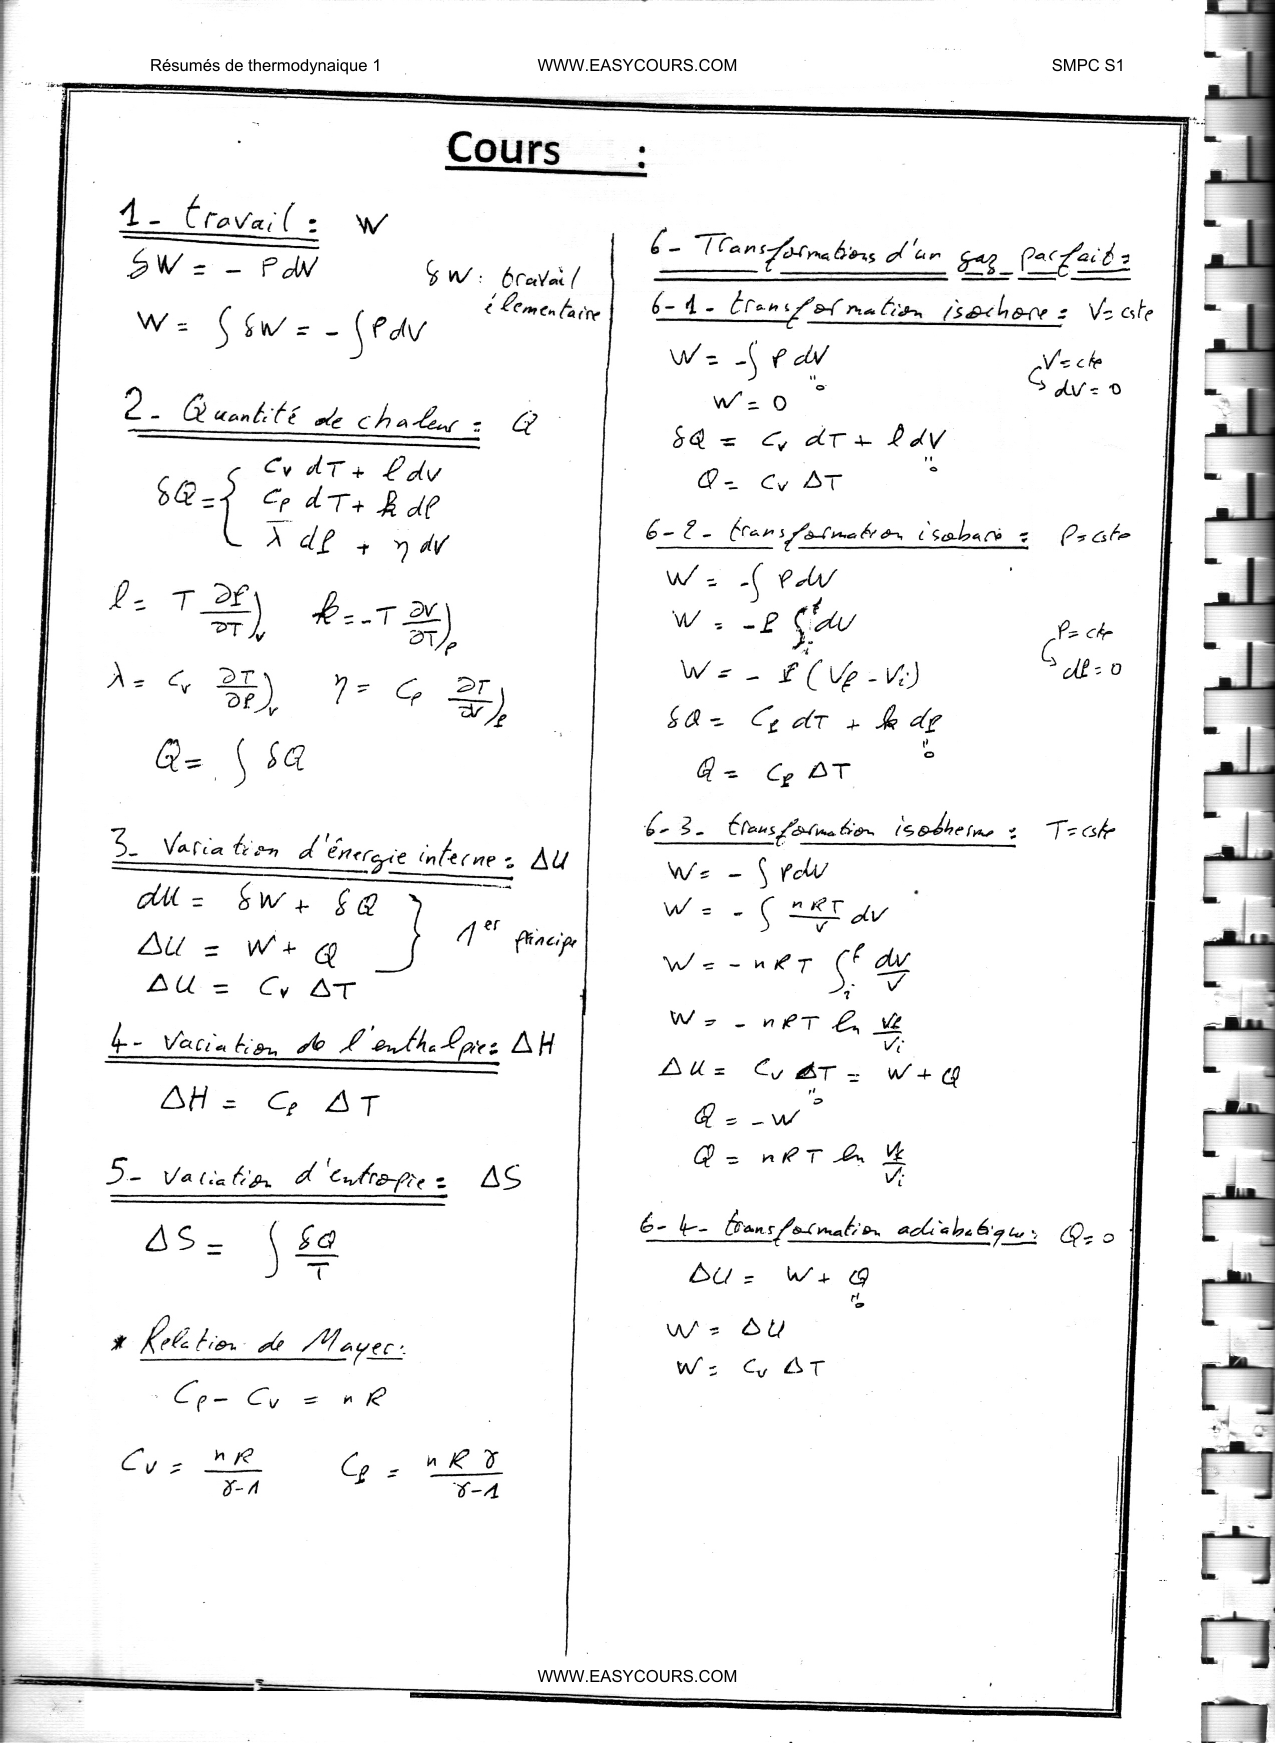 Résumés de thermodynaique 1 WWW.EASYCOURS.COM SMPC S1
Cours :
1- travail : W
δW = - PdV
δW : travail
élementaire
W = ∫ δW = - ∫ PdV
2- Quantité de chaleur : Q
δQ = { Cv dT + l dv
Cp dT + k dP
λ dP + η dv
l = T ∂P/∂T)v k = -T ∂V/∂T)p
λ = Cv ∂T/∂P)v η = Cp ∂T/∂V)p
Q = ∫ δQ
3- Variation d'énergie interne : ΔU
dU = δW + δQ
ΔU = W + Q } 1er principe
ΔU = Cv ΔT
4- Variation de l'enthalpie : ΔH
ΔH = Cp ΔT
5- Variation d'entropie : ΔS
ΔS = ∫ δQ/T
* Relation de Mayer :
Cp - Cv = nR
Cv = nR/γ-1 Cp = nRγ/γ-1
6- Transformations d'un gaz parfait :
6-1- transformation isochore : V=cste
W = -∫ P dV
"0
V=cte
↳ dV = 0
W = 0
δQ = Cv dT + l dV
"0
Q = Cv ΔT
6-2- transformation isobare : P=cste
W = -∫ PdV
W = -P ∫i f dV
P=cte
↳ dP=0
W = - P (Vf - Vi)
δQ = Cp dT + k dP
"0
Q = Cp ΔT
6-3- transformation isotherme : T=cste
W = - ∫ PdV
W = - ∫ nRT/V dV
W = - nRT ∫i f dV/V
W = - nRT ln Vf/Vi
ΔU = Cv ΔT = W + Q
"0
Q = -W
Q = nRT ln Vf/Vi
6-4- transformation adiabatique : Q=0
ΔU = W + Q
"0
W = ΔU
W = Cv ΔT
WWW.EASYCOURS.COM